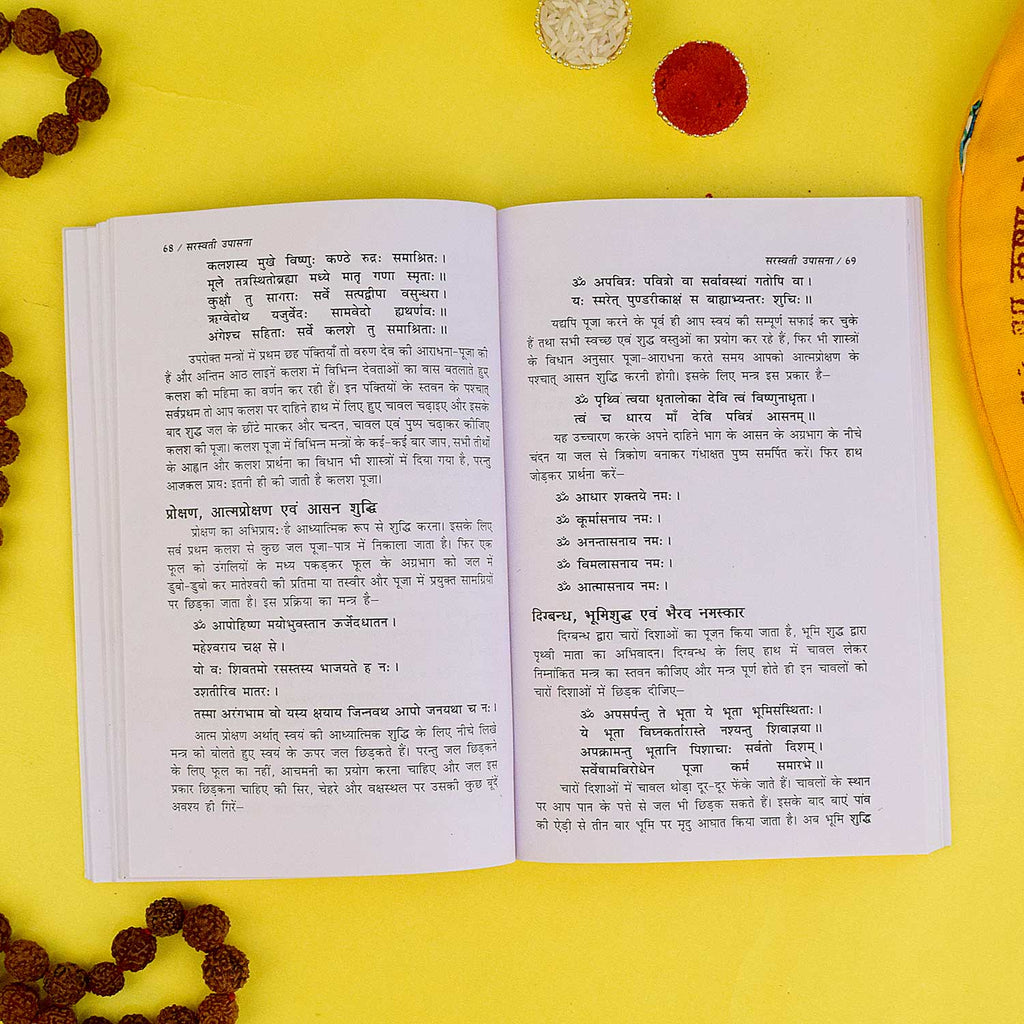 68 / सरस्वती उपासना
कलशस्य मुखे विष्णुः कण्ठे रुद्रः समाश्रितः।
मूले तत्रस्थितोब्रह्मा मध्ये मातृ गणा स्मृताः॥
कुक्षौ तु सागराः सर्वे सत्पद्वीपा वसुन्धरा।
ऋग्वेदोथ यजुर्वेदः सामवेदो ह्यथर्णवः॥
अंगेश्च सहिताः सर्वे कलशे तु समाश्रिताः॥
उपरोक्त मन्त्रों में प्रथम छह पंक्तियाँ तो वरुण देव की आराधना-पूजा की
हैं और अन्तिम आठ लाइनें कलश में विभिन्न देवताओं का वास बतलाते हुए
कलश की महिमा का वर्णन कर रही हैं। इन पंक्तियों के स्तवन के पश्चात्
सर्वप्रथम तो आप कलश पर दाहिने हाथ में लिए हुए चावल चढ़ाइए और इसके
बाद शुद्ध जल के छींटे मारकर और चन्दन, चावल एवं पुष्प चढ़ाकर कीजिए
कलश की पूजा। कलश पूजा में विभिन्न मन्त्रों के कई-कई बार जाप, सभी तीर्थों
के आह्वान और कलश प्रार्थना का विधान भी शास्त्रों में दिया गया है, परन्तु
आजकल प्रायः इतनी ही की जाती है कलश पूजा।
प्रोक्षण, आत्मप्रोक्षण एवं आसन शुद्धि
प्रोक्षण का अभिप्रायः है आध्यात्मिक रूप से शुद्धि करना। इसके लिए
सर्व प्रथम कलश से कुछ जल पूजा-पात्र में निकाला जाता है। फिर एक
फूल को उंगलियों के मध्य पकड़कर फूल के अग्रभाग को जल में
डुबो-डुबो कर मातेश्वरी की प्रतिमा या तस्वीर और पूजा में प्रयुक्त सामग्रियों
पर छिड़का जाता है। इस प्रक्रिया का मन्त्र है–
ॐ आपोहिष्ण मयोभुवस्तान ऊर्जेदधातन।
महेश्वराय चक्ष से।
यो वः शिवतमो रसस्तस्य भाजयते ह नः।
उशतीरिव मातरः।
तस्मा अरंगभाम वो यस्य क्षयाय जिन्नवथ आपो जनयथा च नः।
आत्म प्रोक्षण अर्थात् स्वयं की आध्यात्मिक शुद्धि के लिए नीचे लिखे
मन्त्र को बोलते हुए स्वयं के ऊपर जल छिड़कते हैं। परन्तु जल छिड़कने
के लिए फूल का नहीं, आचमनी का प्रयोग करना चाहिए और जल इस
प्रकार छिड़कना चाहिए की सिर, चेहरे और वक्षस्थल पर उसकी कुछ बूंदें
अवश्य ही गिरें–
सरस्वती उपासना / 69
ॐ अपवित्रः पवित्रो वा सर्वावस्थां गतोपि वा।
यः स्मरेत् पुण्डरीकाक्षं स बाह्याभ्यन्तरः शुचिः॥
यद्यपि पूजा करने के पूर्व ही आप स्वयं की सम्पूर्ण सफाई कर चुके
हैं तथा सभी स्वच्छ एवं शुद्ध वस्तुओं का प्रयोग कर रहे हैं, फिर भी शास्त्रों
के विधान अनुसार पूजा-आराधना करते समय आपको आत्मप्रोक्षण के
पश्चात् आसन शुद्धि करनी होगी। इसके लिए मन्त्र इस प्रकार है–
ॐ पृथ्वि त्वया धृतालोका देवि त्वं विष्णुनाधृता।
त्वं च धारय माँ देवि पवित्रं आसनम्॥
यह उच्चारण करके अपने दाहिने भाग के आसन के अग्रभाग के नीचे
चंदन या जल से त्रिकोण बनाकर गंधाक्षत पुष्प समर्पित करें। फिर हाथ
जोड़कर प्रार्थना करें–
ॐ आधार शक्तये नमः।
ॐ कूर्मासनाय नमः।
ॐ अनन्तासनाय नमः।
ॐ विमलासनाय नमः।
ॐ आत्मासनाय नमः।
दिग्बन्ध, भूमिशुद्ध एवं भैरव नमस्कार
दिग्बन्ध द्वारा चारों दिशाओं का पूजन किया जाता है, भूमि शुद्ध द्वारा
पृथ्वी माता का अभिवादन। दिग्बन्ध के लिए हाथ में चावल लेकर
निम्नांकित मन्त्र का स्तवन कीजिए और मन्त्र पूर्ण होते ही इन चावलों को
चारों दिशाओं में छिड़क दीजिए–
ॐ अपसर्पन्तु ते भूता ये भूता भूमिसंस्थिताः।
ये भूता विघ्नकर्तारास्ते नश्यन्तु शिवाज्ञया॥
अपक्रामन्तु भूतानि पिशाचाः सर्वतो दिशम्।
सर्वेषामविरोधेन पूजा कर्म समारभे॥
चारों दिशाओं में चावल थोड़ा दूर-दूर फेंके जाते हैं। चावलों के स्थान
पर आप पान के पत्ते से जल भी छिड़क सकते हैं। इसके बाद बाएं पांव
की ऐड़ी से तीन बार भूमि पर मृदु आघात किया जाता है। अब भूमि शुद्धि